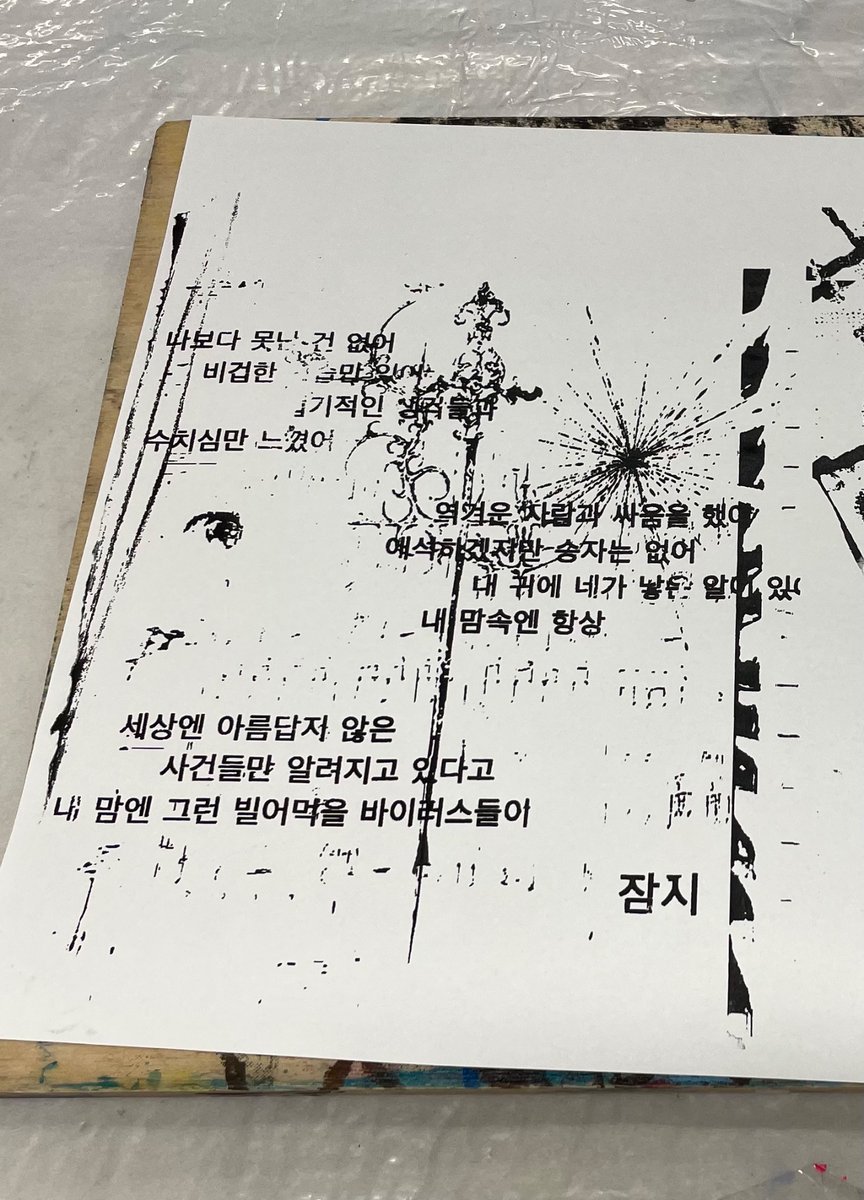 나보다 못난 건 없어
비겁한
수치심만 느꼈어
역겨운 사람과 싸움을 했어
예석하겠지만 승자는 없어
내 귀에 네가 낳은 알이 있어
내 맘속엔 항상
세상엔 아름답자 않은
사건들만 알려지고 있다고
내 맘엔 그런 빌어먹을 바이러스들이
잠지